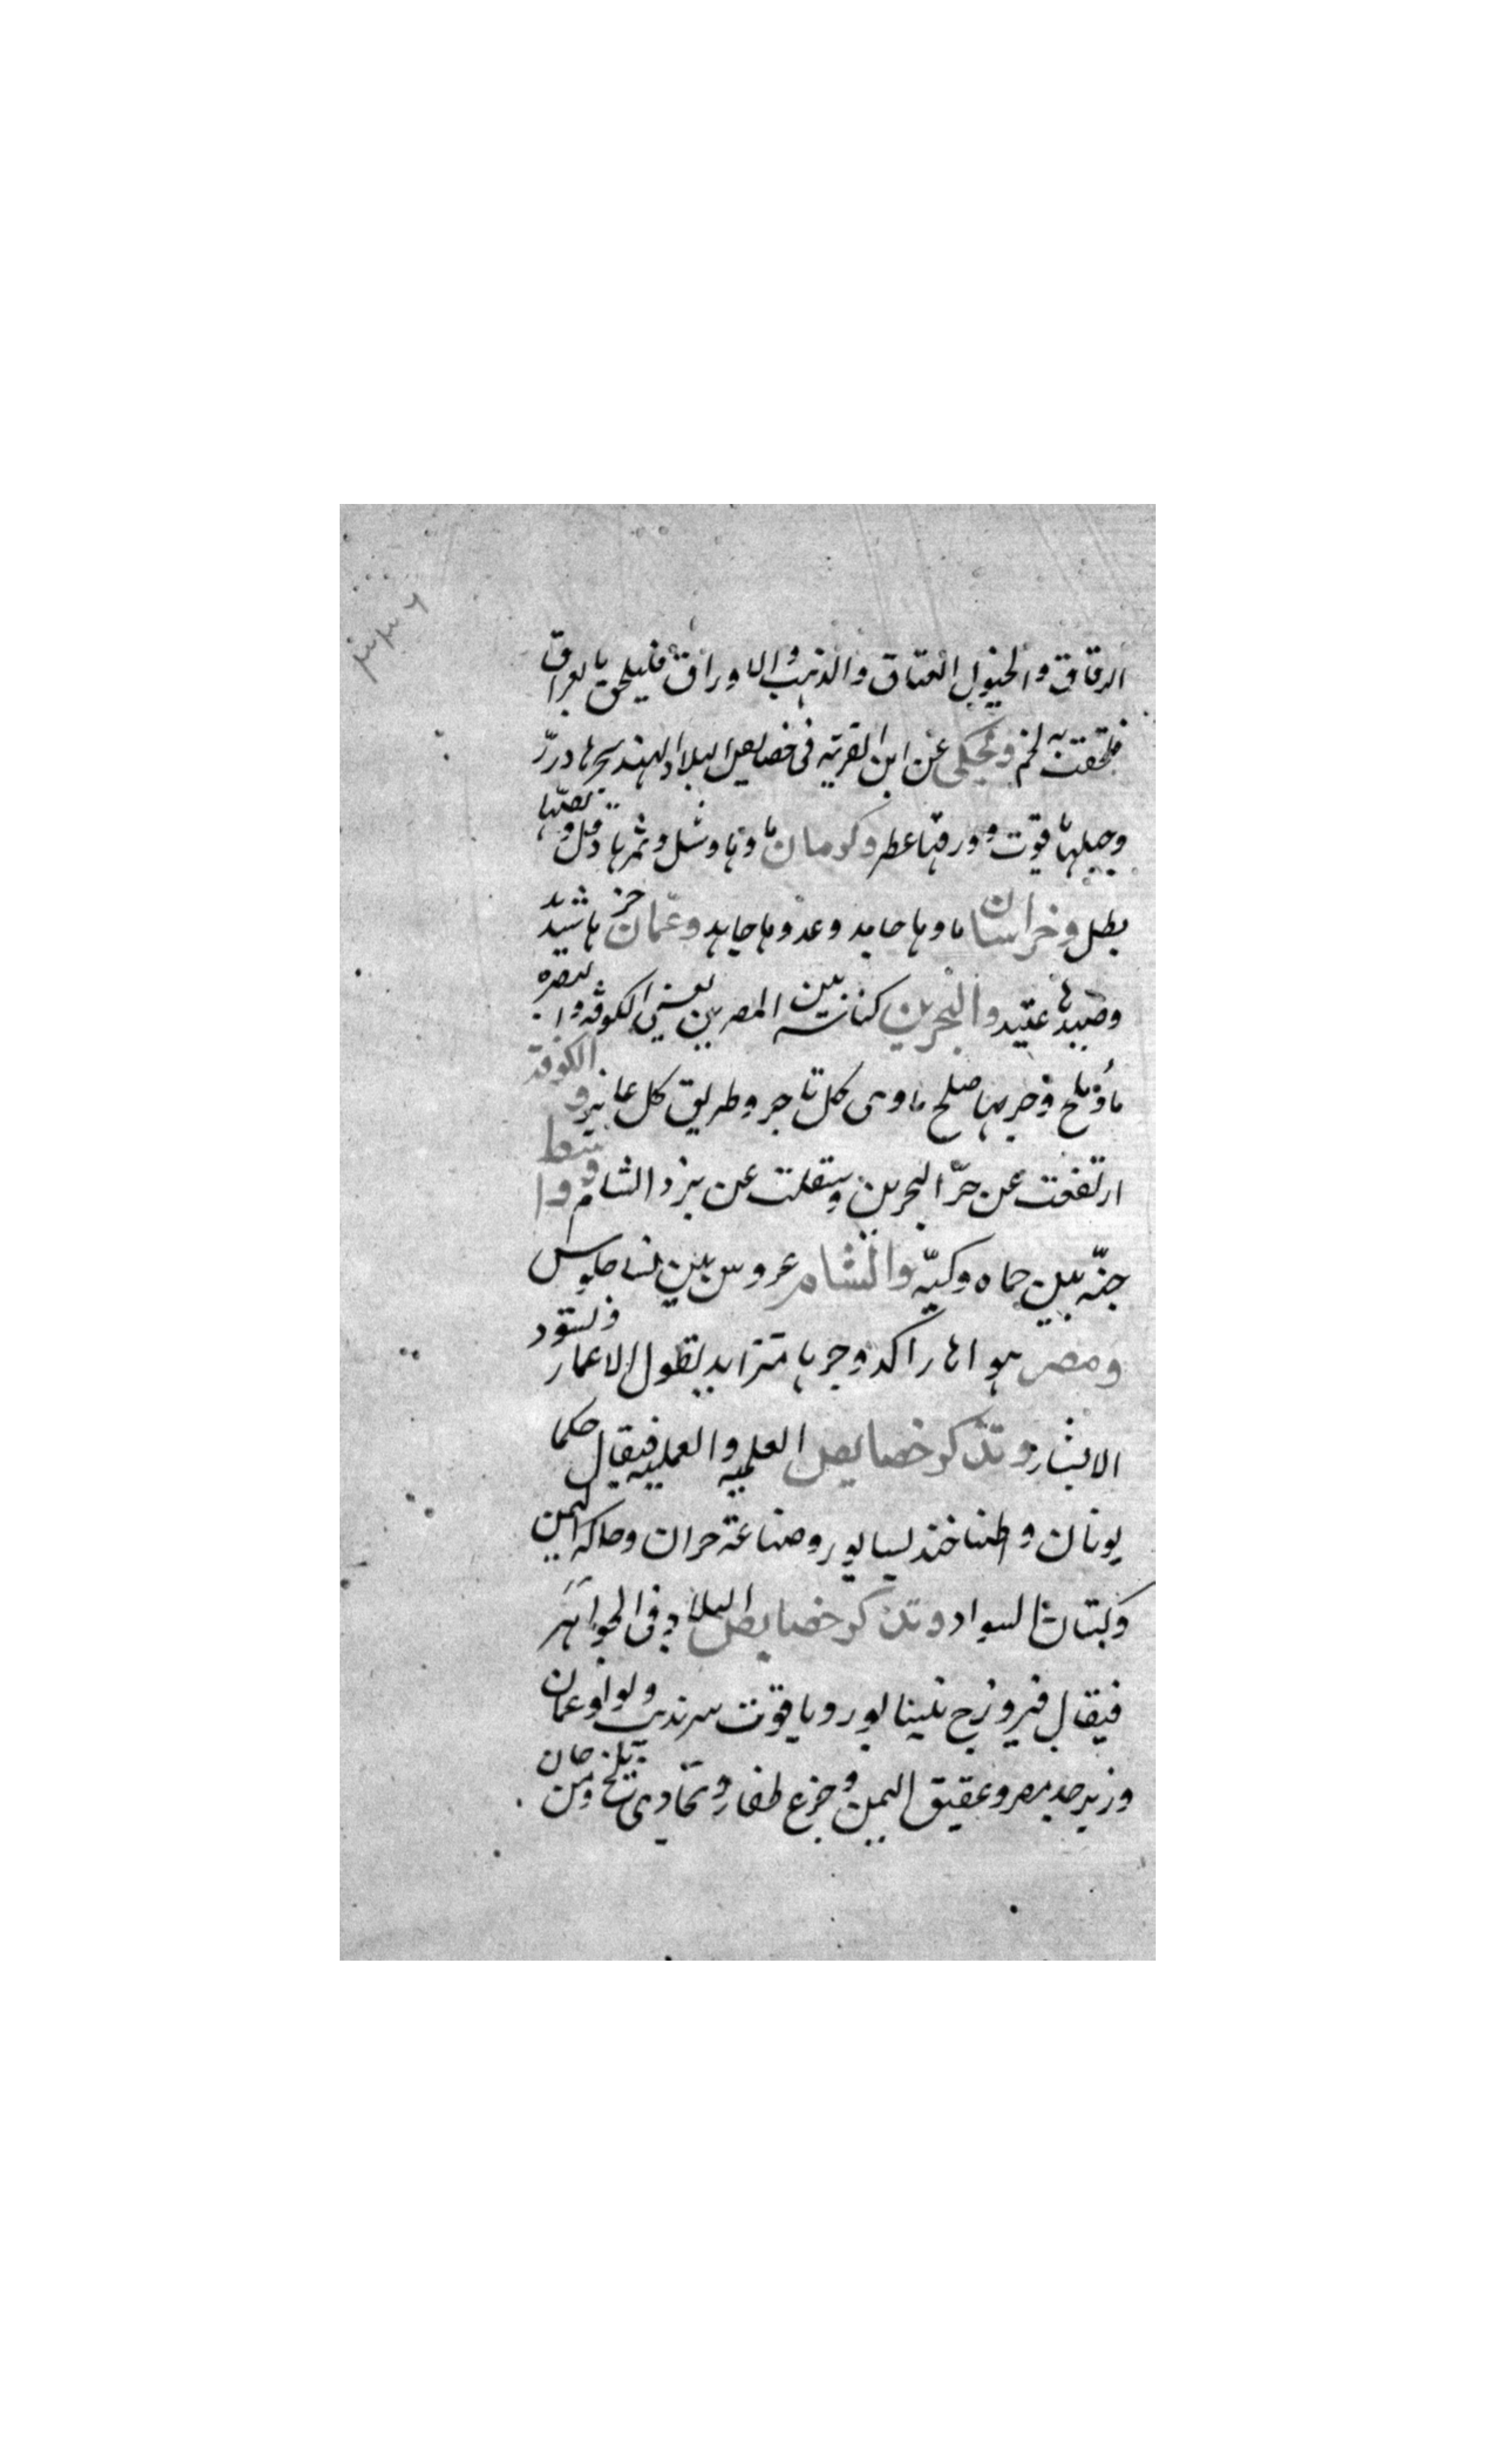 الرقاق والخيول العتاق والذهب والاوراق فليلحق بالعراق
فلحقت به لخم ويحكى عن ابن القريه فى خصايص البلاد الهند بحرها درّ
وجبلها ياقوت وورقها عطر وكرمان ماوها وشل وثمرها دقل ولصّها
بطل وخراسان ماوها جامد وعدوها جاهد وعمان حرها شديد
وصيدها عتيد والبحرين كناسه بين المصرين يعنى الكوفه والبصره
ماؤها ملح وحربها صلح ماوى كل تاجر وطريق كل عابر والكوفة
ارتفعت عن حرّ البحرين وسفلت عن برد الشام وواسط
جنّه بين حماه وكنّه والشام عروس بين نسا جلوس
ومصر هواها راكد وحرها متزايد يطول الاعمار ويسود
الابشار وتذكر خصايص العلميه والعمليه فيقال حكما
يونان واطبا جنديسابور وصناعة حران وحاكه اليمن
وكتاب السواد وتذكر خصايص البلاد فى الجواهر
فيقال فيروزج نيسابور وياقوت سرنديب ولولو عمان
وزبرجد مصر وعقيق اليمن وجزع ظفار وبجادى بلخ ومرجان